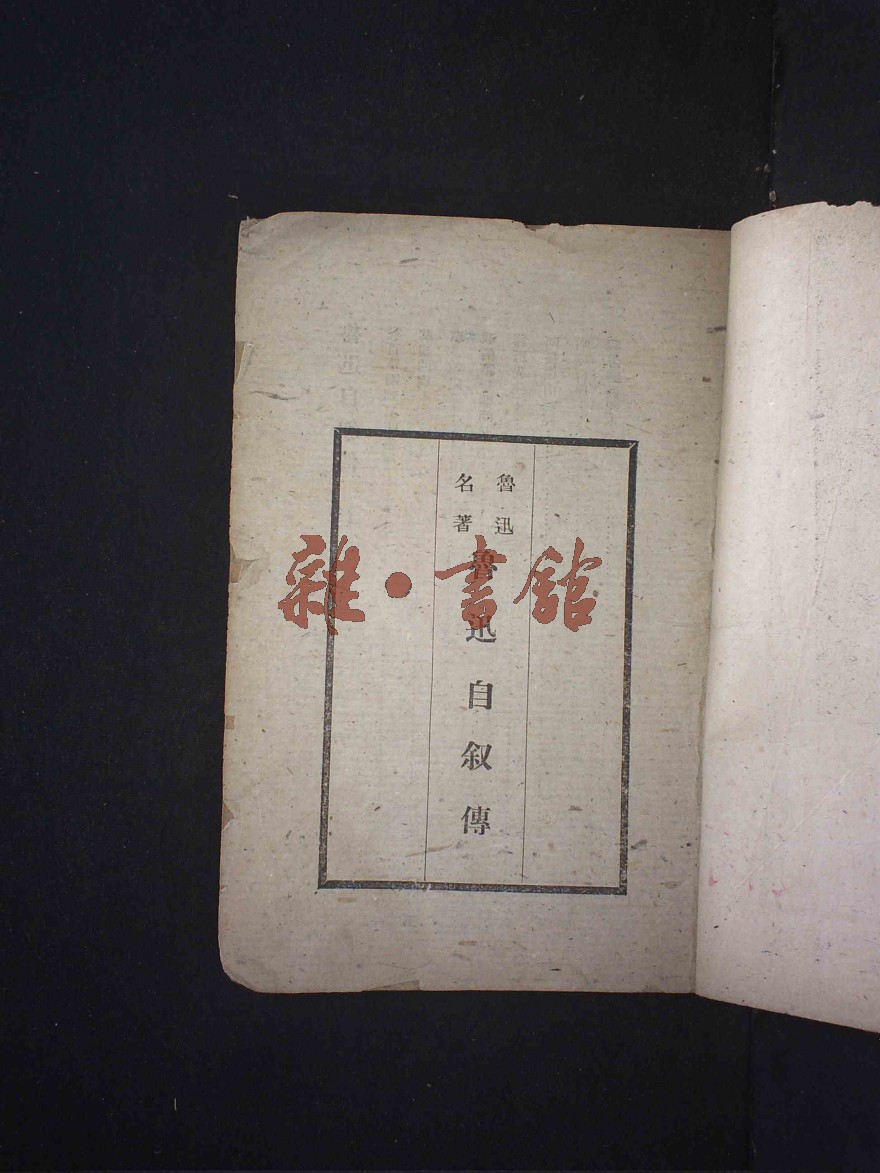 魯迅
名著
魯迅自叙傳
雜·書館